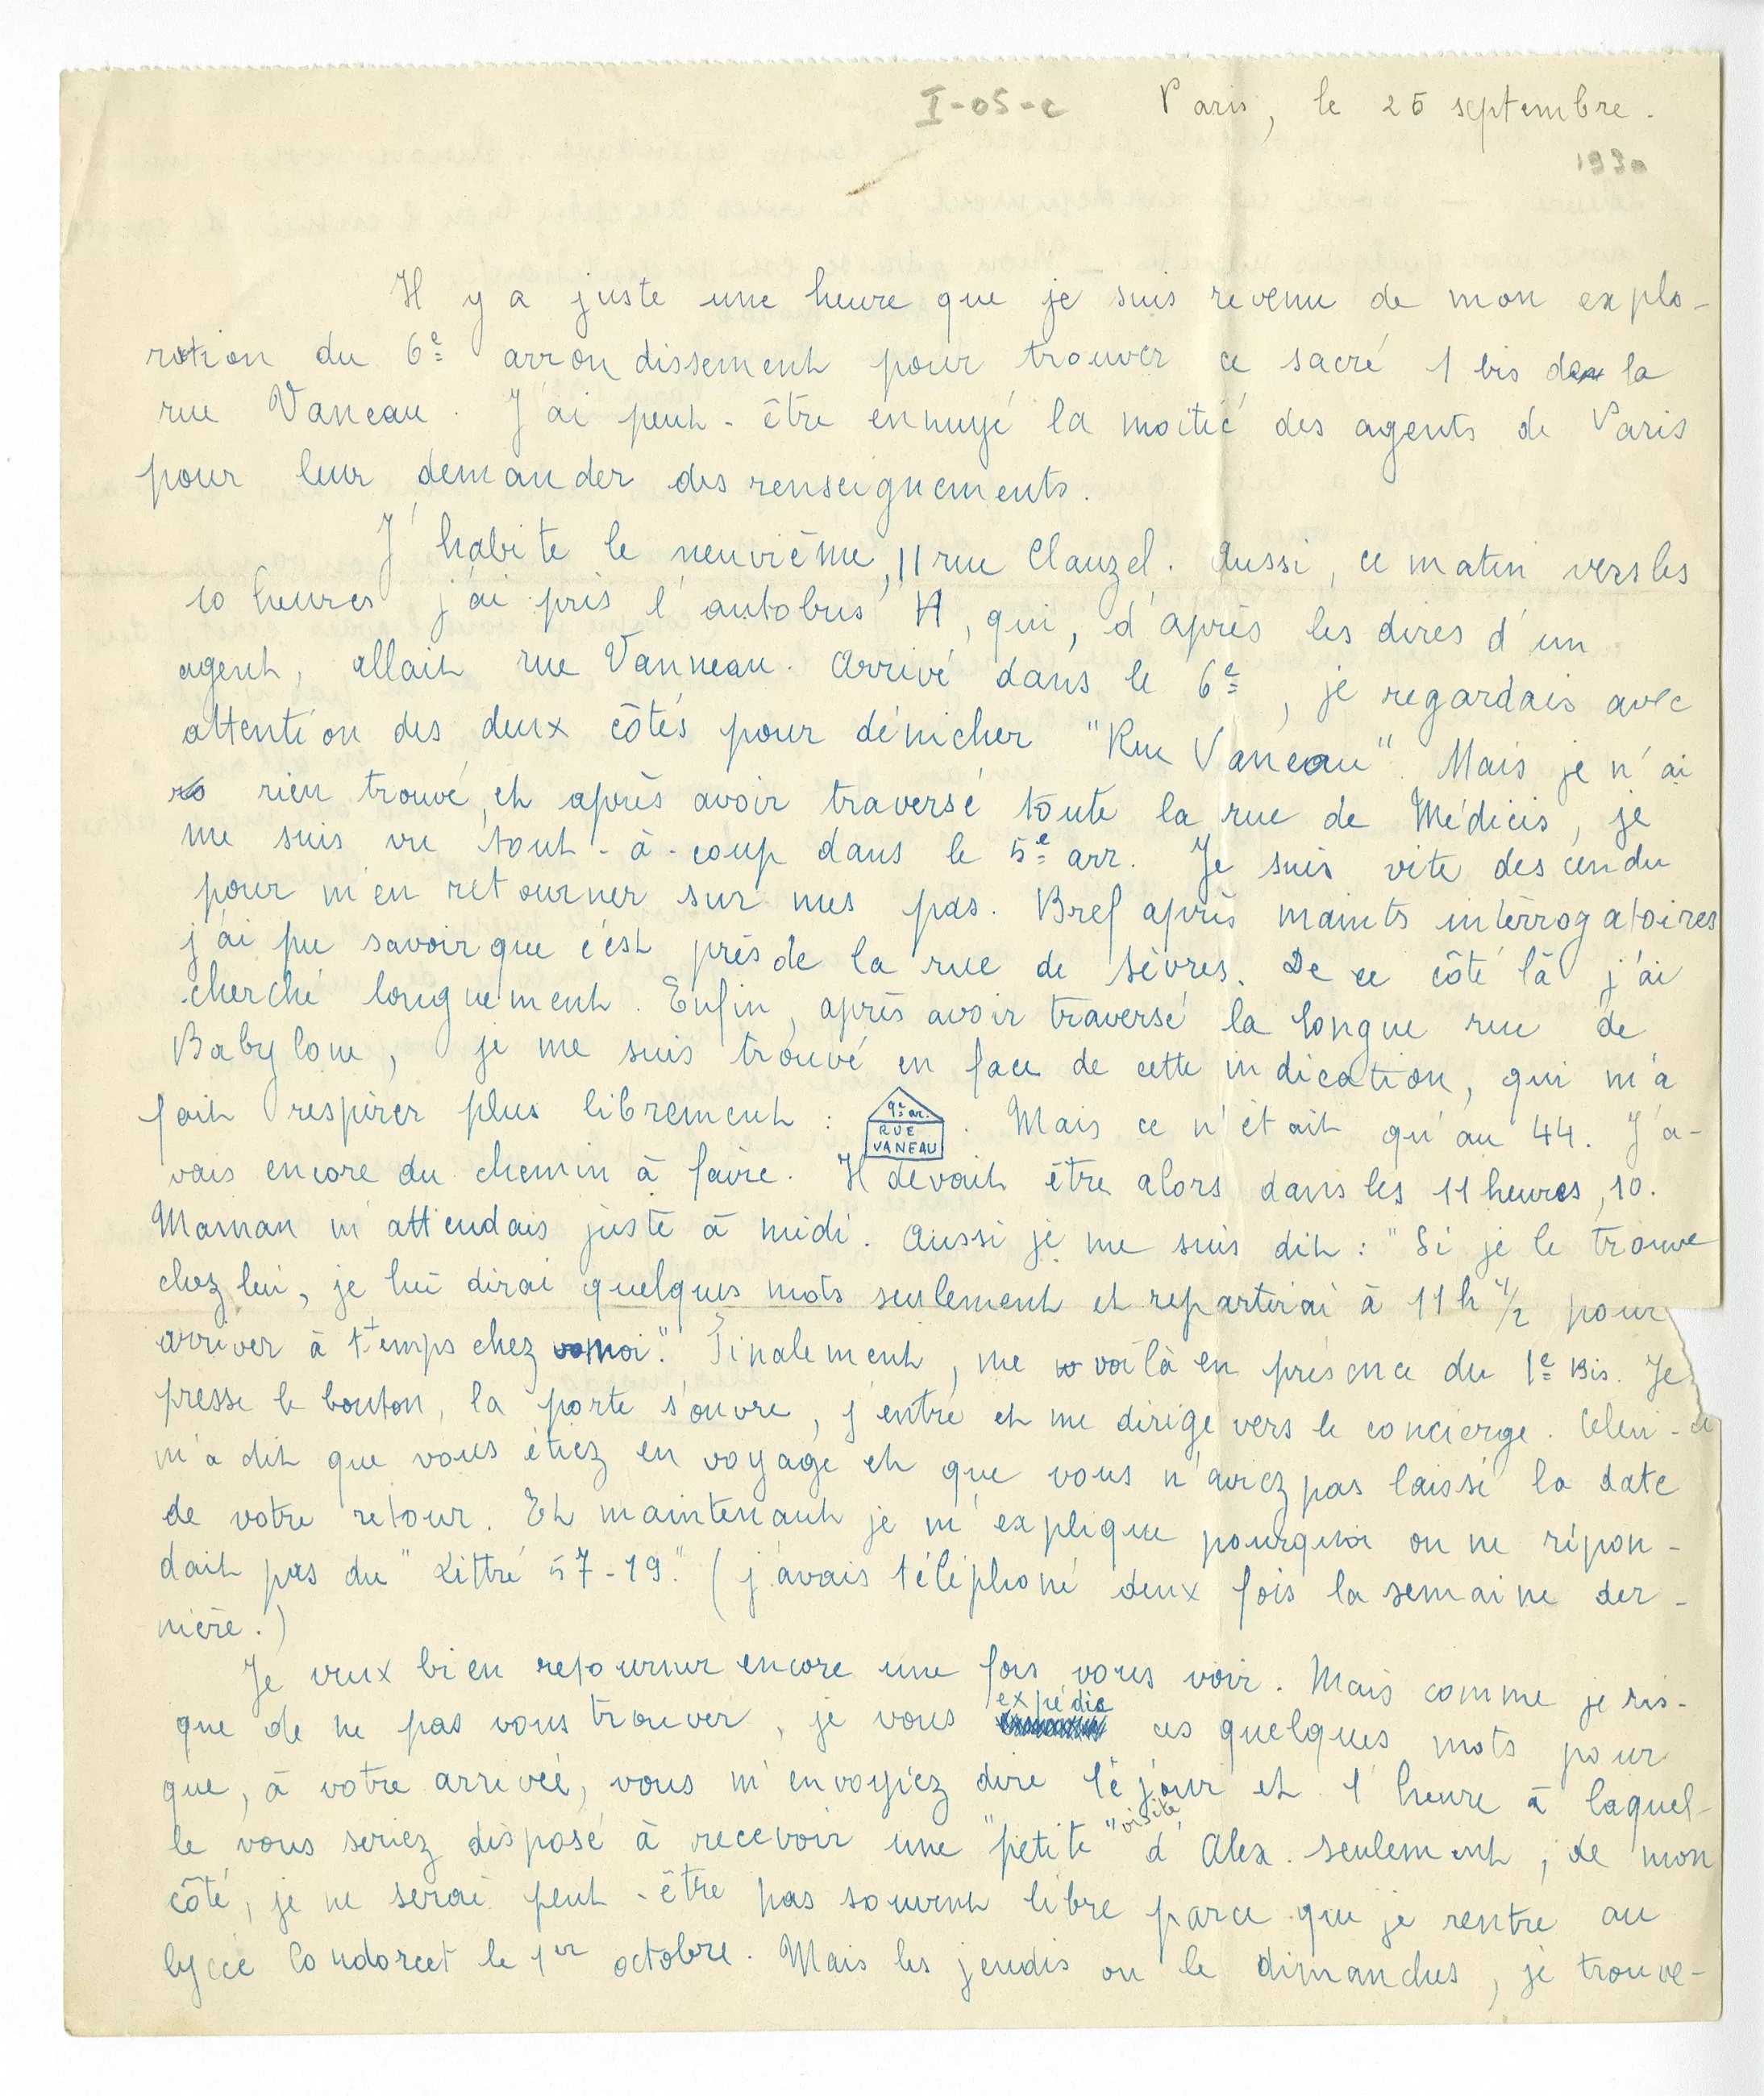 I-05-c
Paris, le 25 septembre.
1930
Il y a juste une heure que je suis revenu de mon explo-
ration du 6e arrondissement pour trouver ce sacré 1 bis de la
rue Vaneau. J'ai peut-être ennuyé la moitié des agents de Paris
pour leur demander des renseignements.
J'habite le neuvième, 11 rue Clauzel. Aussi, ce matin vers les
10 heures j'ai pris l'autobus H, qui, d'après les dires d'un
agent, allait rue Vanneau. Arrivé dans le 6e, je regardais avec
attention des deux côtés pour dénicher "Rue Vaneau". Mais je n'ai
rien trouvé, et après avoir traversé toute la rue de Médicis, je
me suis vu tout-à-coup dans le 5e arr. Je suis vite descendu
pour m'en retourner sur mes pas. Bref après maints intérrogatoires
j'ai pu savoir que c'est près de la rue de Sèvres. De ce côté là j'ai
cherché longuement. Enfin, après avoir traversé la longue rue de
Babylone, je me suis trouvé en face de cette indication, qui m'a
fait respirer plus librement : . Mais ce n'était qu'au 44. J'a-
ar.
RUE
VANEAU
vais encore du chemin à faire. Il devait être alors dans les 11 heures, 10.
Maman m'attendais juste à midi. Aussi je me suis dit : "Si je le trouve
chez lui, je lui dirai quelques mots seulement et repartirai à 11 h 1/2 pour
arriver à temps chez moi." Finalement, me voilà en présence du 1e Bis. Je
presse le bouton, la porte s'ouvre, j'entre et me dirige vers le concierge. Celui-ci
m'a dit que vous étiez en voyage et que vous n'aviez pas laissé la date
de votre retour. Et maintenant je m'explique pourquoi on ne répon-
dait pas du "Littré 57-19." (j'avais téléphoné deux fois la semaine der-
nière.)
Je veux bien retourner encore une fois vous voir. Mais comme je ris-
que de ne pas vous trouver, je vous expédie ces quelques mots pour
que, à votre arrivée, vous m'envoyiez dire le jour et l'heure à laquel-
le vous seriez disposé à recevoir une "petite" visite d'Alex. Seulement, de mon
côté, je ne serai peut-être pas souvent libre parce que je rentre au
lycée Condorcet le 1er octobre. Mais les jeudis ou le dimanches, je trouve-